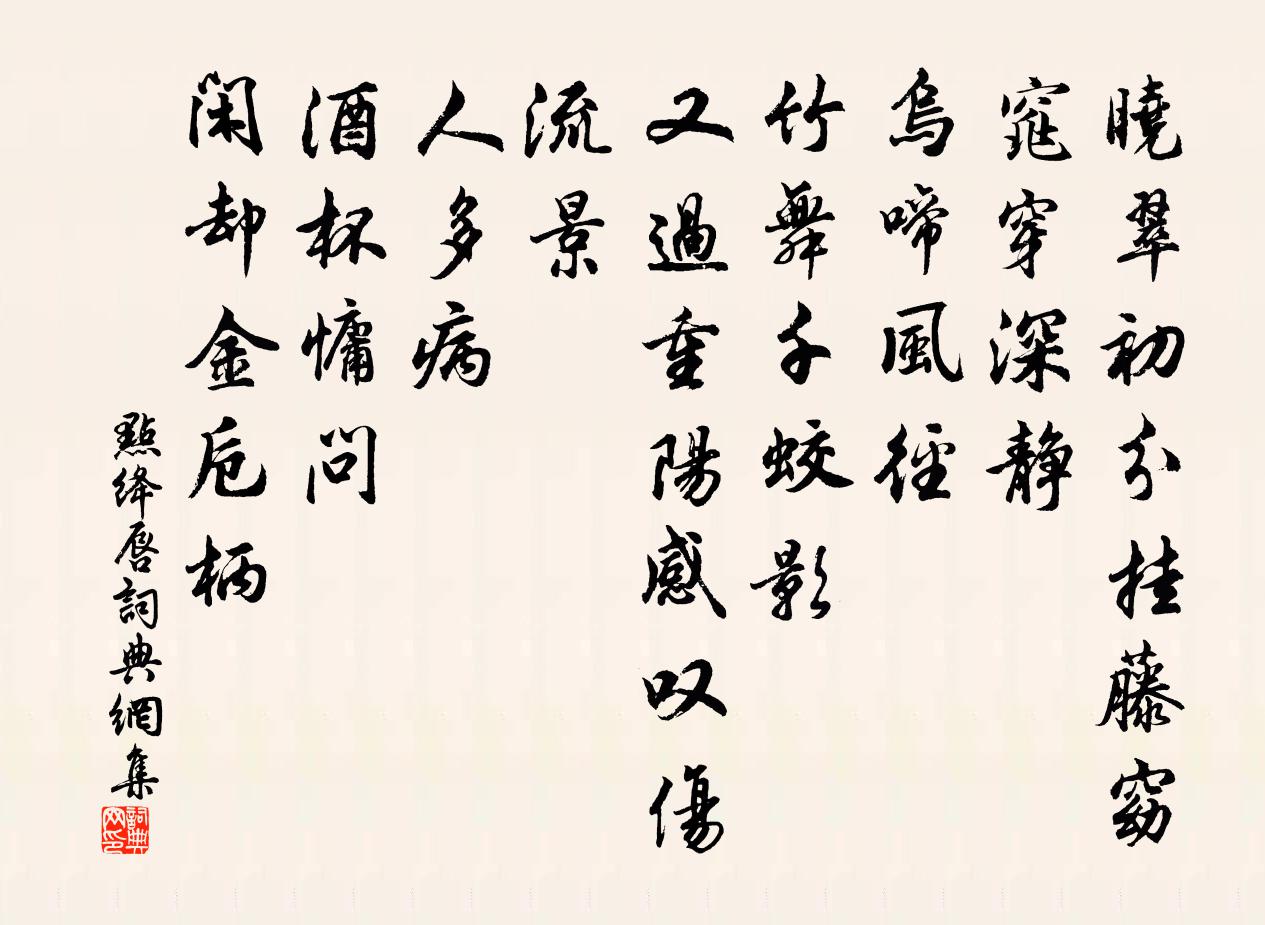 曉翠初分挂藤窈
窕穿深静
烏啼風徑
竹舞千蛟影
又過重陽感叹傷
流景
人多病
酒杯慵問
閑却金卮柄
點绛唇詞典網集
詞典网印